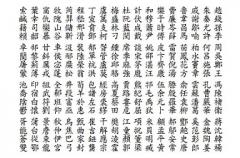 趙錢孫李 周吳鄭王 馮陳褚衛 蔣沈韓楊
朱秦尤許 何呂施張 孔曹嚴華 金魏陶姜
戚謝鄒喻 柏水竇章 雲蘇潘葛 奚范彭郎
魯韋昌馬 苗鳳花方 俞任袁柳 酆鮑史唐
費廉岑薛 雷賀倪湯 滕殷羅畢 郝鄔安常
樂于時傅 皮卞齊康 伍余元卜 顧孟平黃
和穆蕭尹 姚邵湛汪 祁毛禹狄 米貝明臧
計伏成戴 談宋茅龐 熊紀舒屈 項祝董梁
杜阮藍閔 席季麻強 賈路婁危 江童顏郭
梅盛林刁 鍾徐邱駱 高夏蔡田 樊胡凌霍
虞萬支柯 昝管盧莫 經房裘繆 干解應宗
丁宣賁鄧 郁單杭洪 包諸左石 崔吉鈕龔
程嵇邢滑 裴陸榮翁 荀羊於惠 甄麴家封
芮羿儲靳 汲邴糜松 井段富巫 烏焦巴弓
牧隗山谷 車侯宓蓬 全郗班仰 秋仲伊宮
甯仇欒暴 甘鈄厲戎 祖武符劉 景詹束龍
葉幸司韶 郜黎薊薄 印宿白懷 蒲邰從鄂
索咸籍賴 卓藺屠蒙 池喬陰鬱 胥能蒼雙